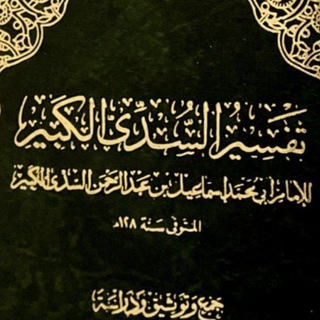 تفسير السدي الكبير
للإمام أبي محمد اسماعيل بن عبد الرحمن السدي الكبير
المتوفى سنة ١٢٨هـ
جمع وتوثيق ودراسة